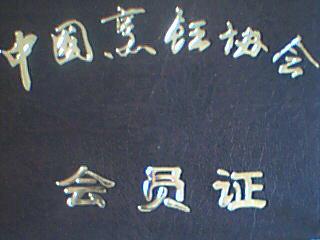 中国烹饪协会
会员证